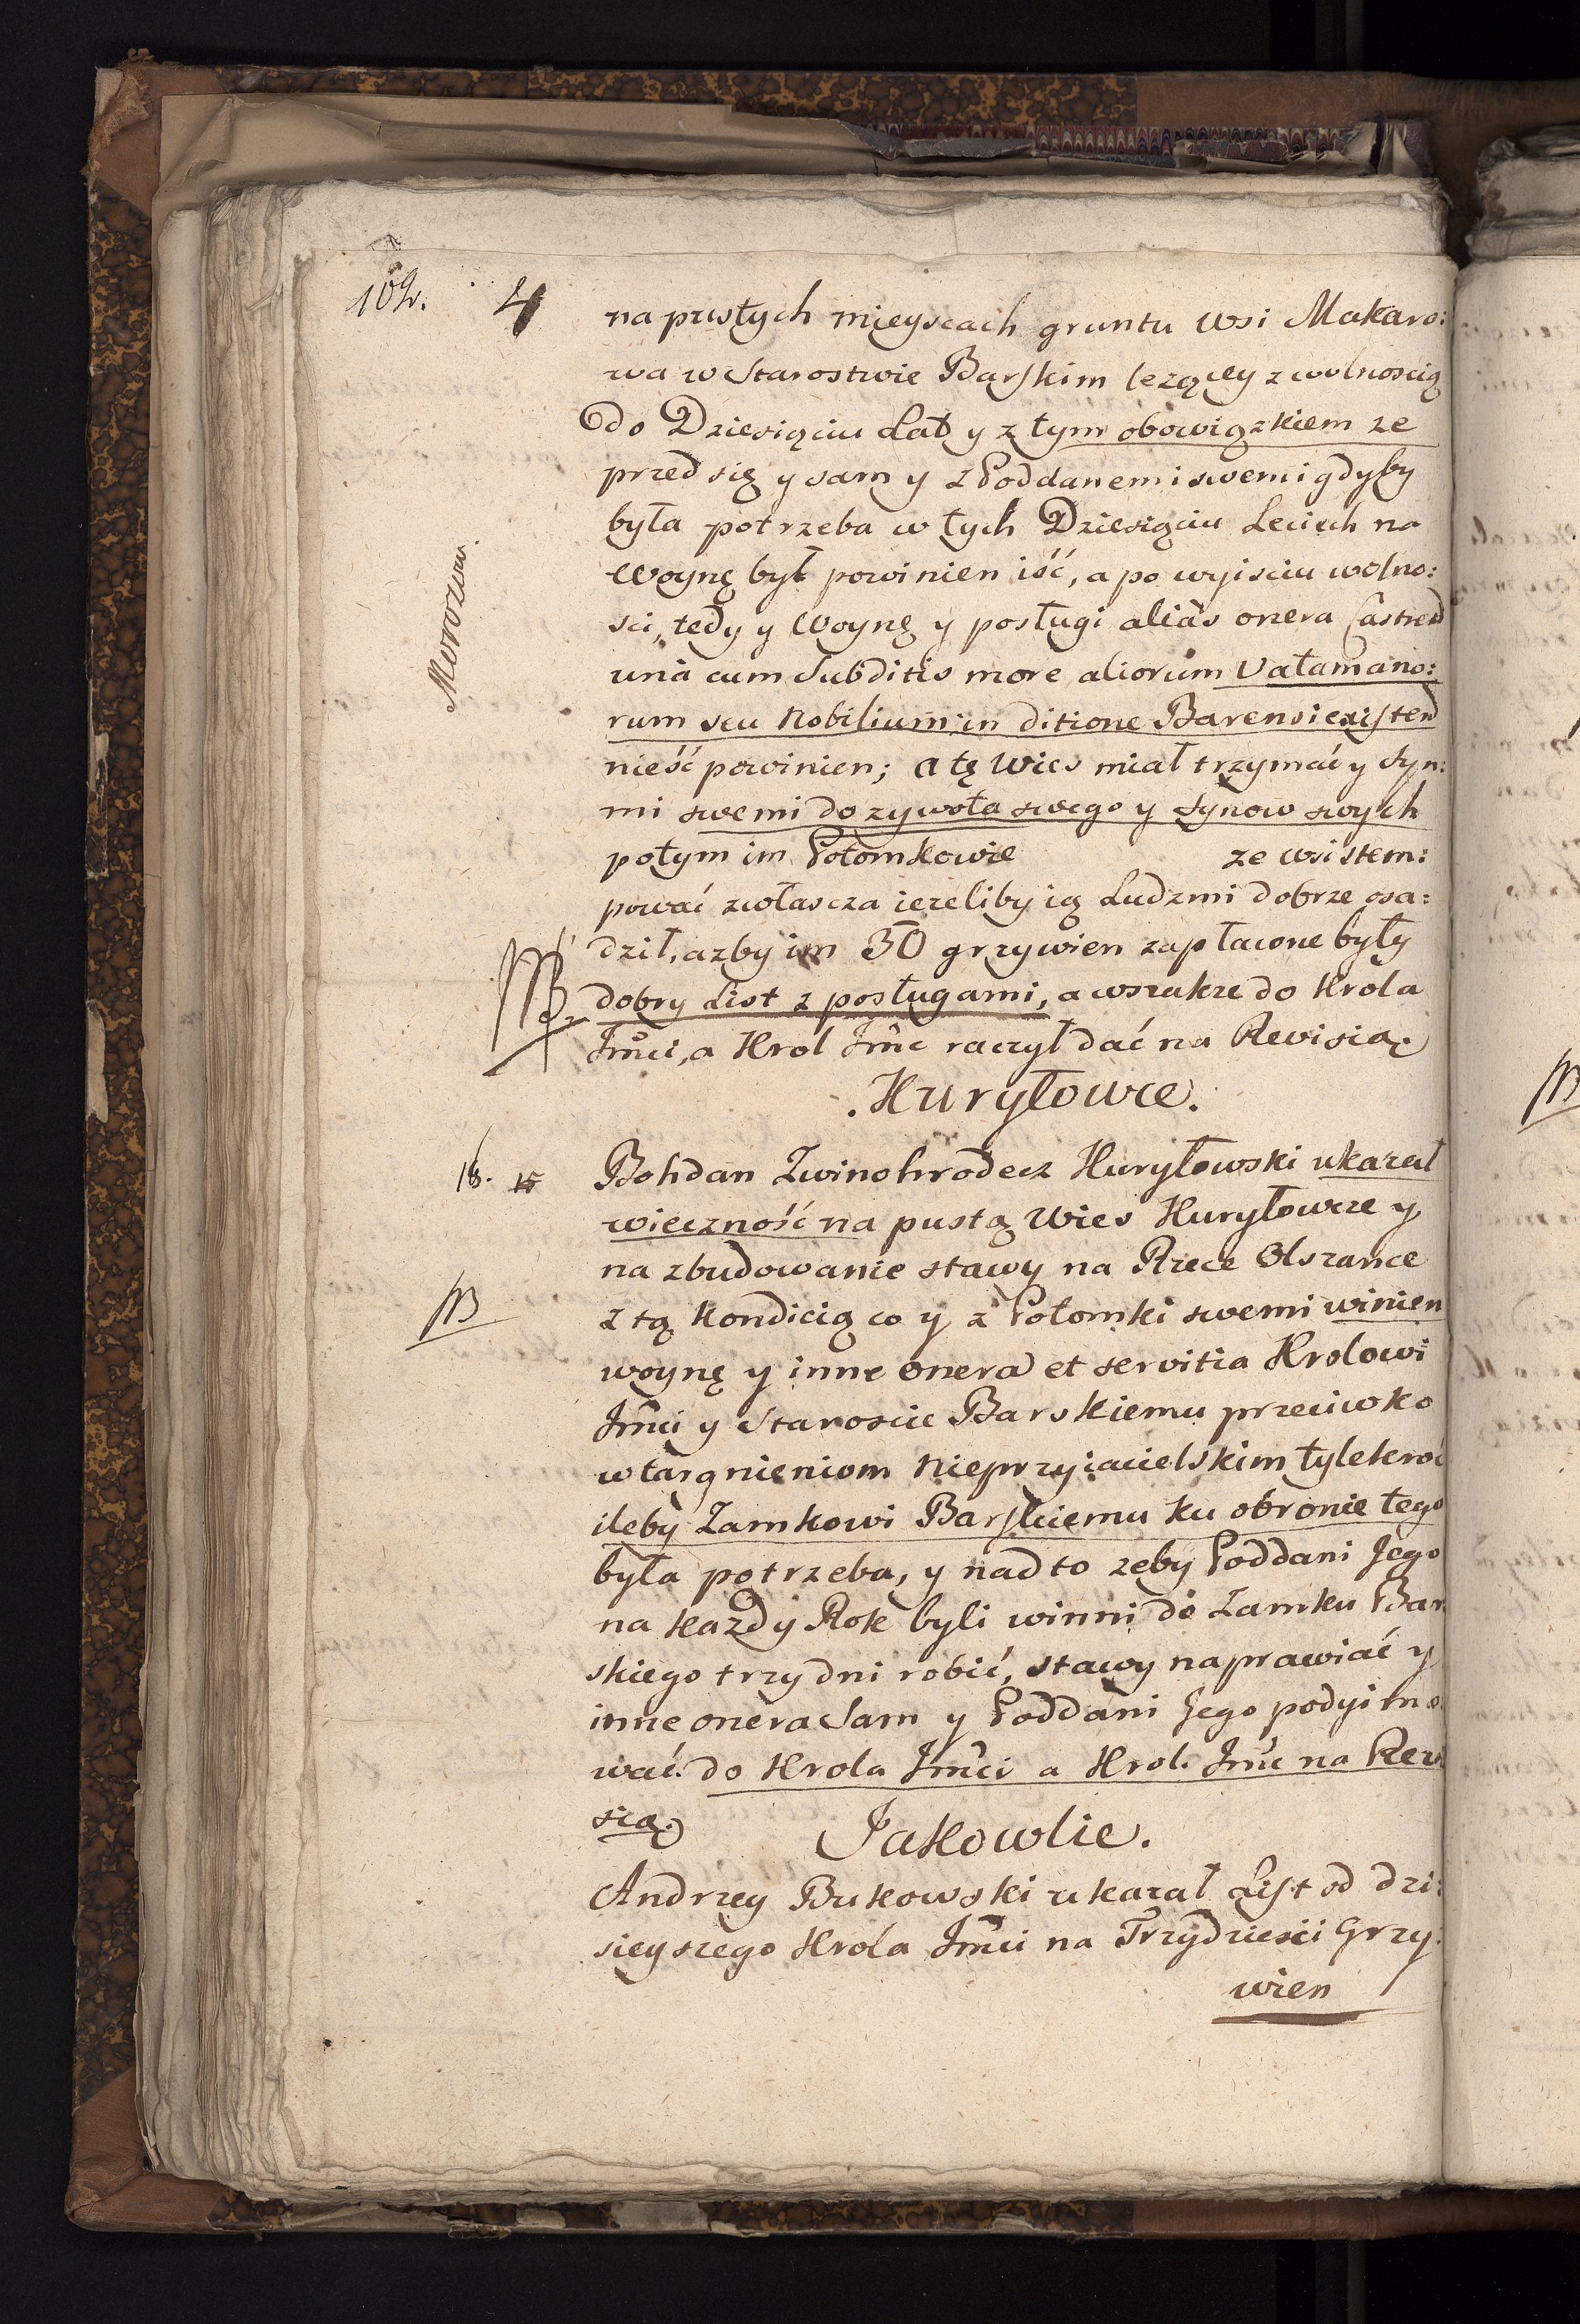 102. 4
na pustych mieyscach gruntu wsi Makaro:
wa w Starostwie Barskim lezącey z wolnoscią
do Dziesiąciu Lat y z tym obowiązkiem ze
przed się y sam y z Poddanemi swemi gdyby
była potrzeba w tych Dziesiąciu Leciech na
Woynę był powinien iść, a po wyisciu wolno:
sci, tedy y Woynę y posługi aliàs onera Castren
unà cum Subditis more aliorum Vatamano:
rum seu Nobilium in ditione Barensi existen
nieść powinien; a tę Wies miał trzymać y Syn:
mi swemi do zywota swego y Synow swych
potym im Potomkowie ze wsi stem:
pować zwłascza iezeliby ią Ludzmi dobrze osa:
dził, azby im 30 grzywien zapłacone były
dobry List z posługami, a wszakze do Krola
Jmći, a Krol Jmć raczył dać na Revisią.
Morozow.
NB
. Kuryłowce.
16. 15
Bohdan Zwinohrodecz Kuryłowski ukazał
wieczność na pustą Wies Kuryłowce y
na zbudowanie stawy na Rzece Olszance
z tą Kondicią co y z Potomki swemi winien
NB
woynę y inne onera et servitia Krolowi
Jmći y Staroscie Barskiemu przeciwko
wtargnieniom Nieprzyiacielskim tylekroć
ileby Zamkowi Barskiemu ku obronie tego
była potrzeba, y nadto zeby Poddani Jego
na kazdy Rok byli winni do Zamku Bar
skiego trzy dni robić, stawy naprawiać y
inne onera Sam y Poddani Jego podyimo
wać. do Krola Jmći a Krol. Jmć na Revi
sią.
Jakowlie.
Andrzey Bukowski ukazał List od dzi:
sieyszego Krola Jmći na Trzydziesci Grzy:
wien